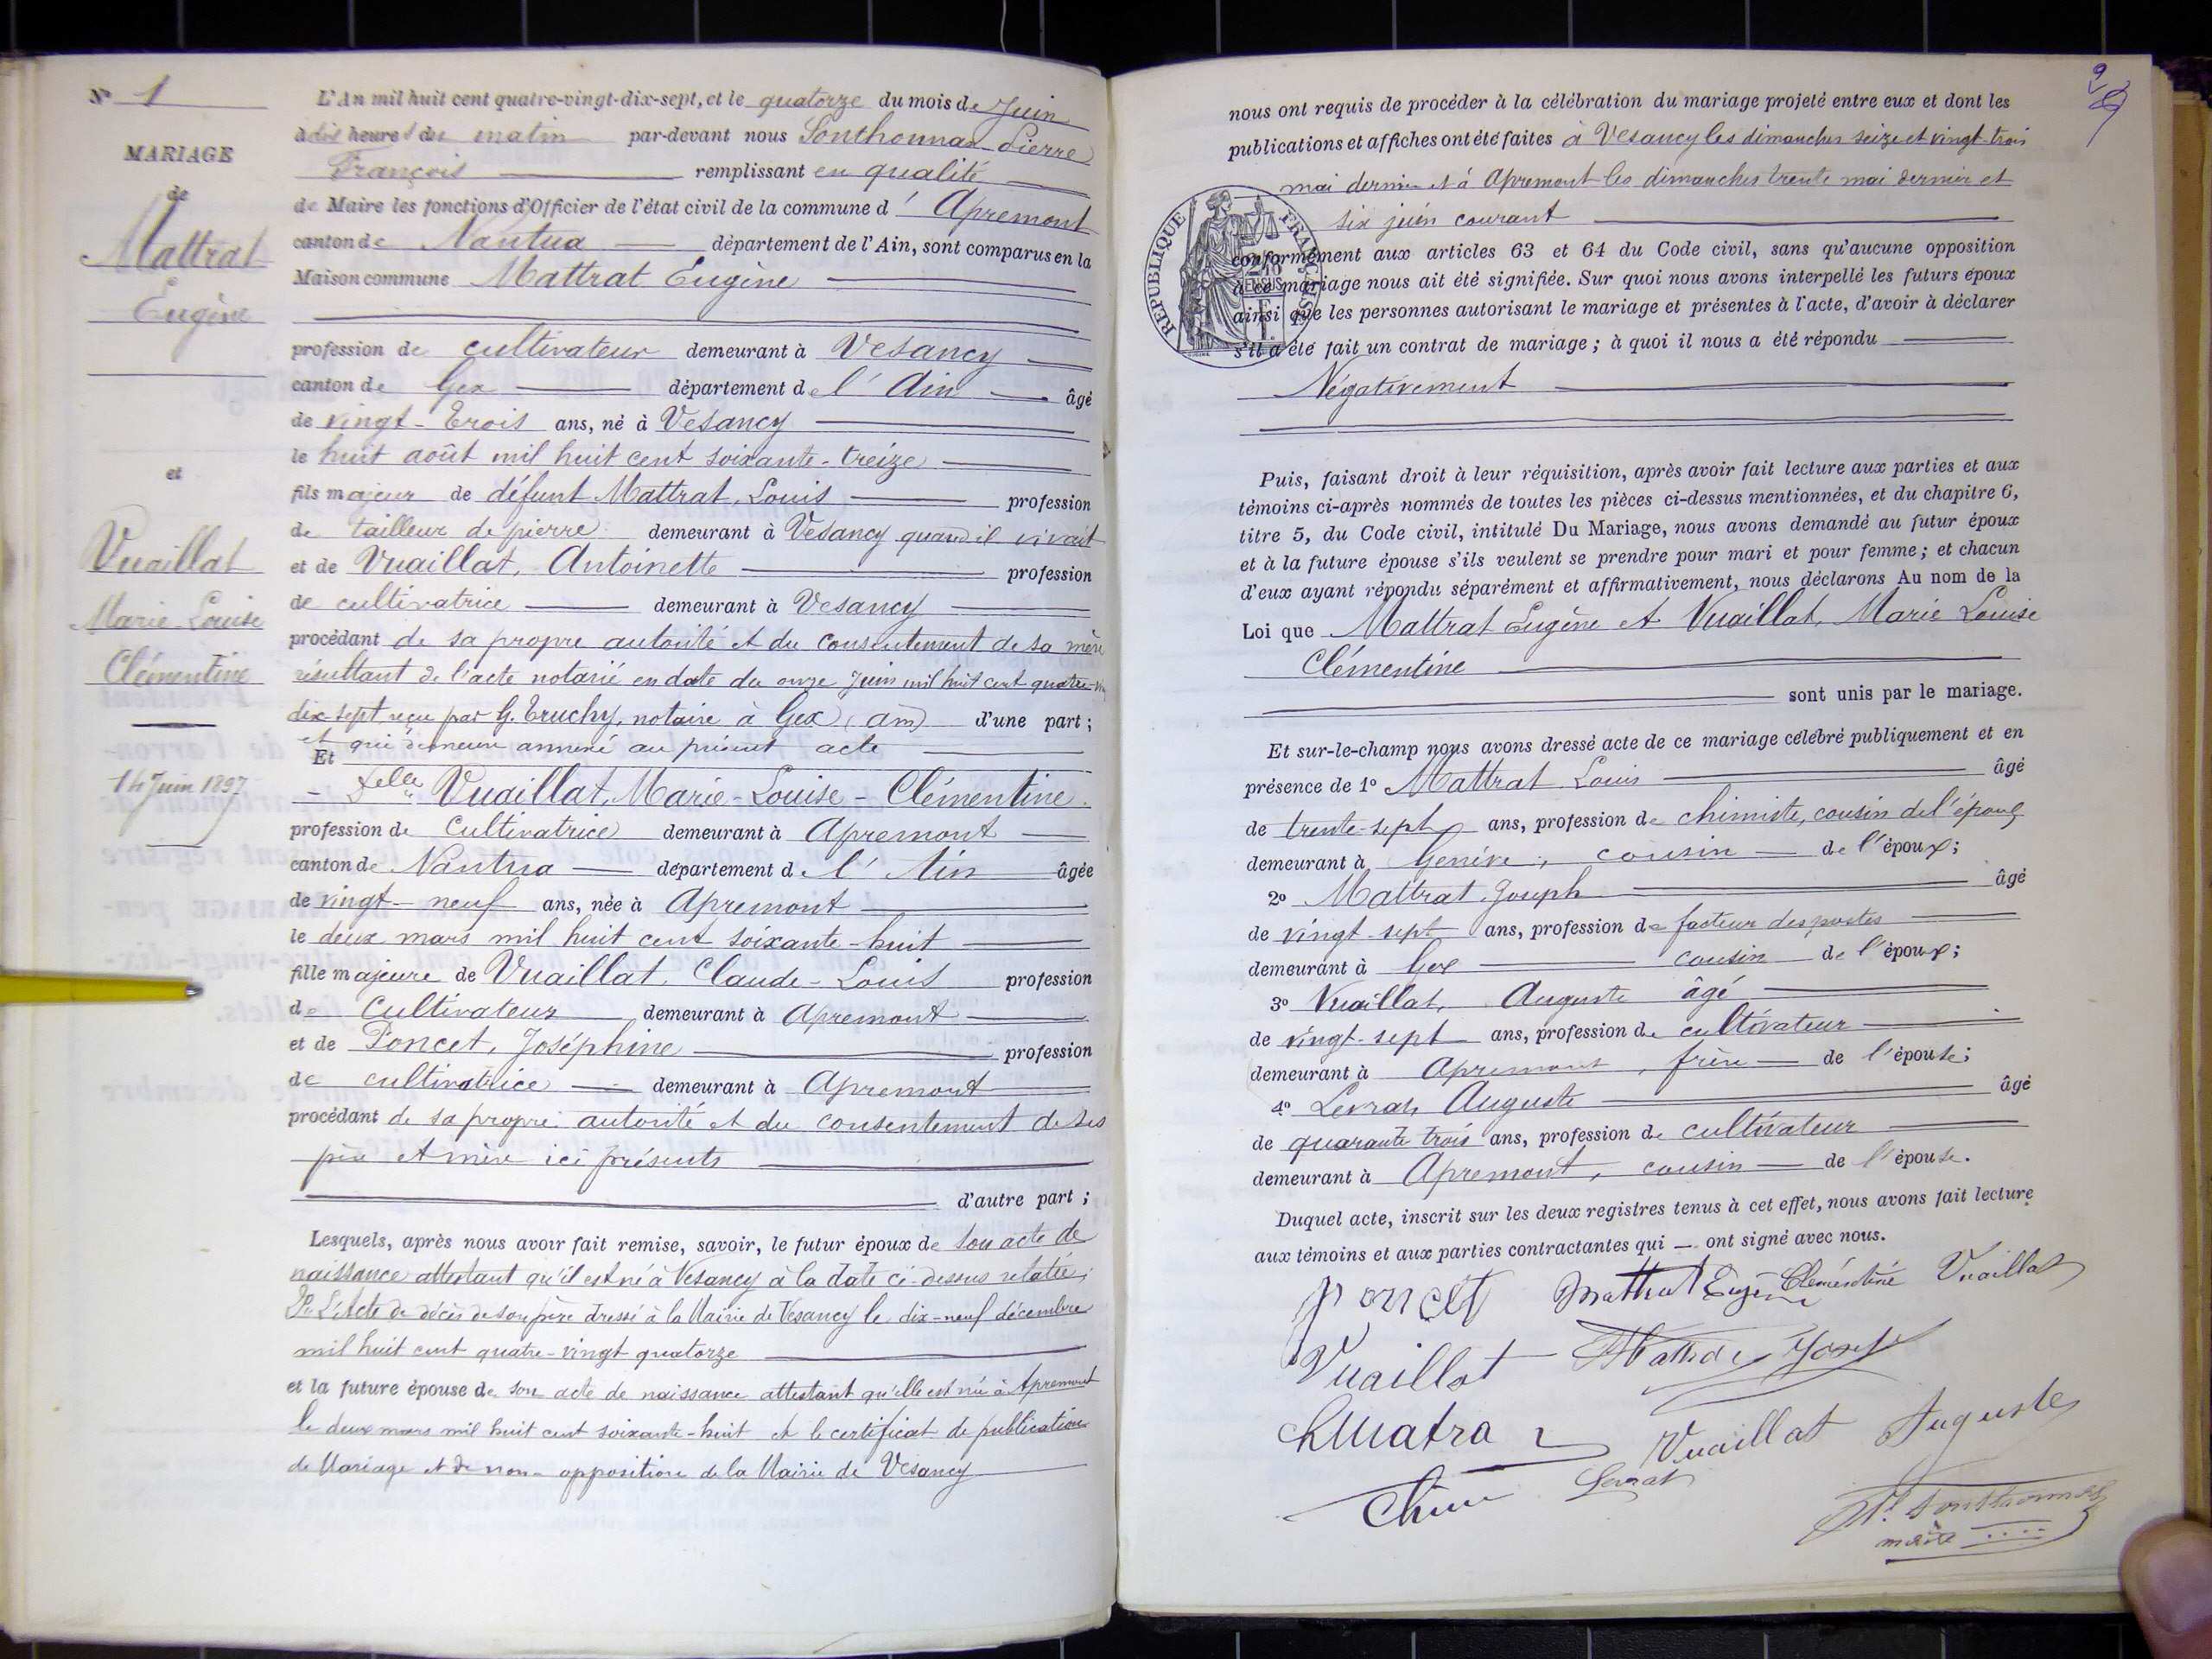 N° 1
MARIAGE
de
Mattrat
Eugène
et
Vuaillat
Marie-Louise
Clémentine
14 Juin 1897
L'An mil huit cent quatre-vingt-dix-sept, et le quatorze du mois de Juin
à dix heures du matin par-devant nous Sonthonnax Pierre
François remplissant en qualité
de Maire les fonctions d'Officier de l'état civil de la commune d' Apremont
canton de Nantua département de l'Ain, sont comparus en la
Maison commune Mattrat Eugène
profession de cultivateur demeurant à Vesancy
canton de Gex département de l'Ain âgé
de vingt-trois ans, né à Vesancy
le huit août mil huit cent soixante-treize
fils majeur de défunt Mattrat, Louis profession
de tailleur de pierre demeurant à Vesancy quand il vivait
et de Vuaillat, Antoinette profession
de cultivatrice demeurant à Vesancy
procédant de sa propre autorité et du consentement de sa mère
résultant de l'acte notarié en date du onze Juin mil huit cent quatre-vin
dix-sept reçu par G. Truchy, notaire à Gex (Ain) d'une part ;
et qui demeure annexé au présent acte
Et
Delle Vuaillat, Marie-Louise-Clémentine
profession de Cultivatrice demeurant à Apremont
canton de Nantua département d l'Ain âgée
de vingt-neuf ans, née à Apremont
le deux mars mil huit cent soixante-huit
fille majeure de Vuaillat, Claude-Louis profession
de Cultivateur demeurant à Apremont
et de Poncet, Joséphine profession
de cultivatrice demeurant à Apremont
procédant de sa propre autorité et du consentement de ses
père et mère ici présents
d'autre part ;
Lesquels, après nous avoir fait remise, savoir, le futur époux de son acte de
naissance attestant qu'il est né à Vesancy à la date ci-dessus relatée;
L'Acte de décès de son père dressé à la Mairie de Vesancy le dix-neuf décembre
mil huit cent quatre-vingt quatorze
et la future épouse de son acte de naissance attestant qu'elle est née à Apremont
le deux mars mil huit cent soixante-huit et le certificat de publication
de Mariage et de non-opposition de la Mairie de Vesancy
2
nous ont requis de procéder à la célébration du mariage projeté entre eux et dont les
publications et affiches ont été faites à Vesancy les dimanches seize et vingt-trois
mai dernier et à Apremont les dimanches trente mai dernier et
six juin courant
RÉPUBLIQUE FRANÇAISE
conformément aux articles 63 et 64 du Code civil, sans qu'aucune opposition
à ce mariage nous ait été signifiée. Sur quoi nous avons interpellé les futurs époux
ainsi que les personnes autorisant le mariage et présentes à l'acte, d'avoir à déclarer
s'il a été fait un contrat de mariage ; à quoi il nous a été répondu
Négativement
Puis, faisant droit à leur réquisition, après avoir fait lecture aux parties et aux
témoins ci-après nommés de toutes les pièces ci-dessus mentionnées, et du chapitre 6,
titre 5, du Code civil, intitulé Du Mariage, nous avons demandé au futur époux
et à la future épouse s'ils veulent se prendre pour mari et pour femme ; et chacun
d'eux ayant répondu séparément et affirmativement, nous déclarons Au nom de la
Loi que Mattrat Eugène et Vuaillat, Marie Louise
Clémentine
sont unis par le mariage.
Et sur-le-champ nous avons dressé acte de ce mariage célébré publiquement et en
présence de 1° Mattrat Louis âgé
de trente-sept ans, profession de chimiste, cousin de l'époux
demeurant à Genève, cousin de l'époux;
2° Mattrat, Joseph âgé
de vingt-sept ans, profession de facteur des postes
demeurant à Gex cousin de l'époux;
3° Vuaillat, Auguste âgé
de vingt-sept ans, profession de cultivateur
demeurant à Apremont, frère de l'épouse;
4° Levrat, Auguste âgé
de quarante trois ans, profession de cultivateur
demeurant à Apremont, cousin de l'épouse.
Duquel acte, inscrit sur les deux registres tenus à cet effet, nous avons fait lecture
aux témoins et aux parties contractantes qui ont signé avec nous.
Poncet Mattrat Eugène Clémentine Vuaillat
Vuaillat
Vuaillat Auguste
Levrat
Sonthonnax
maire